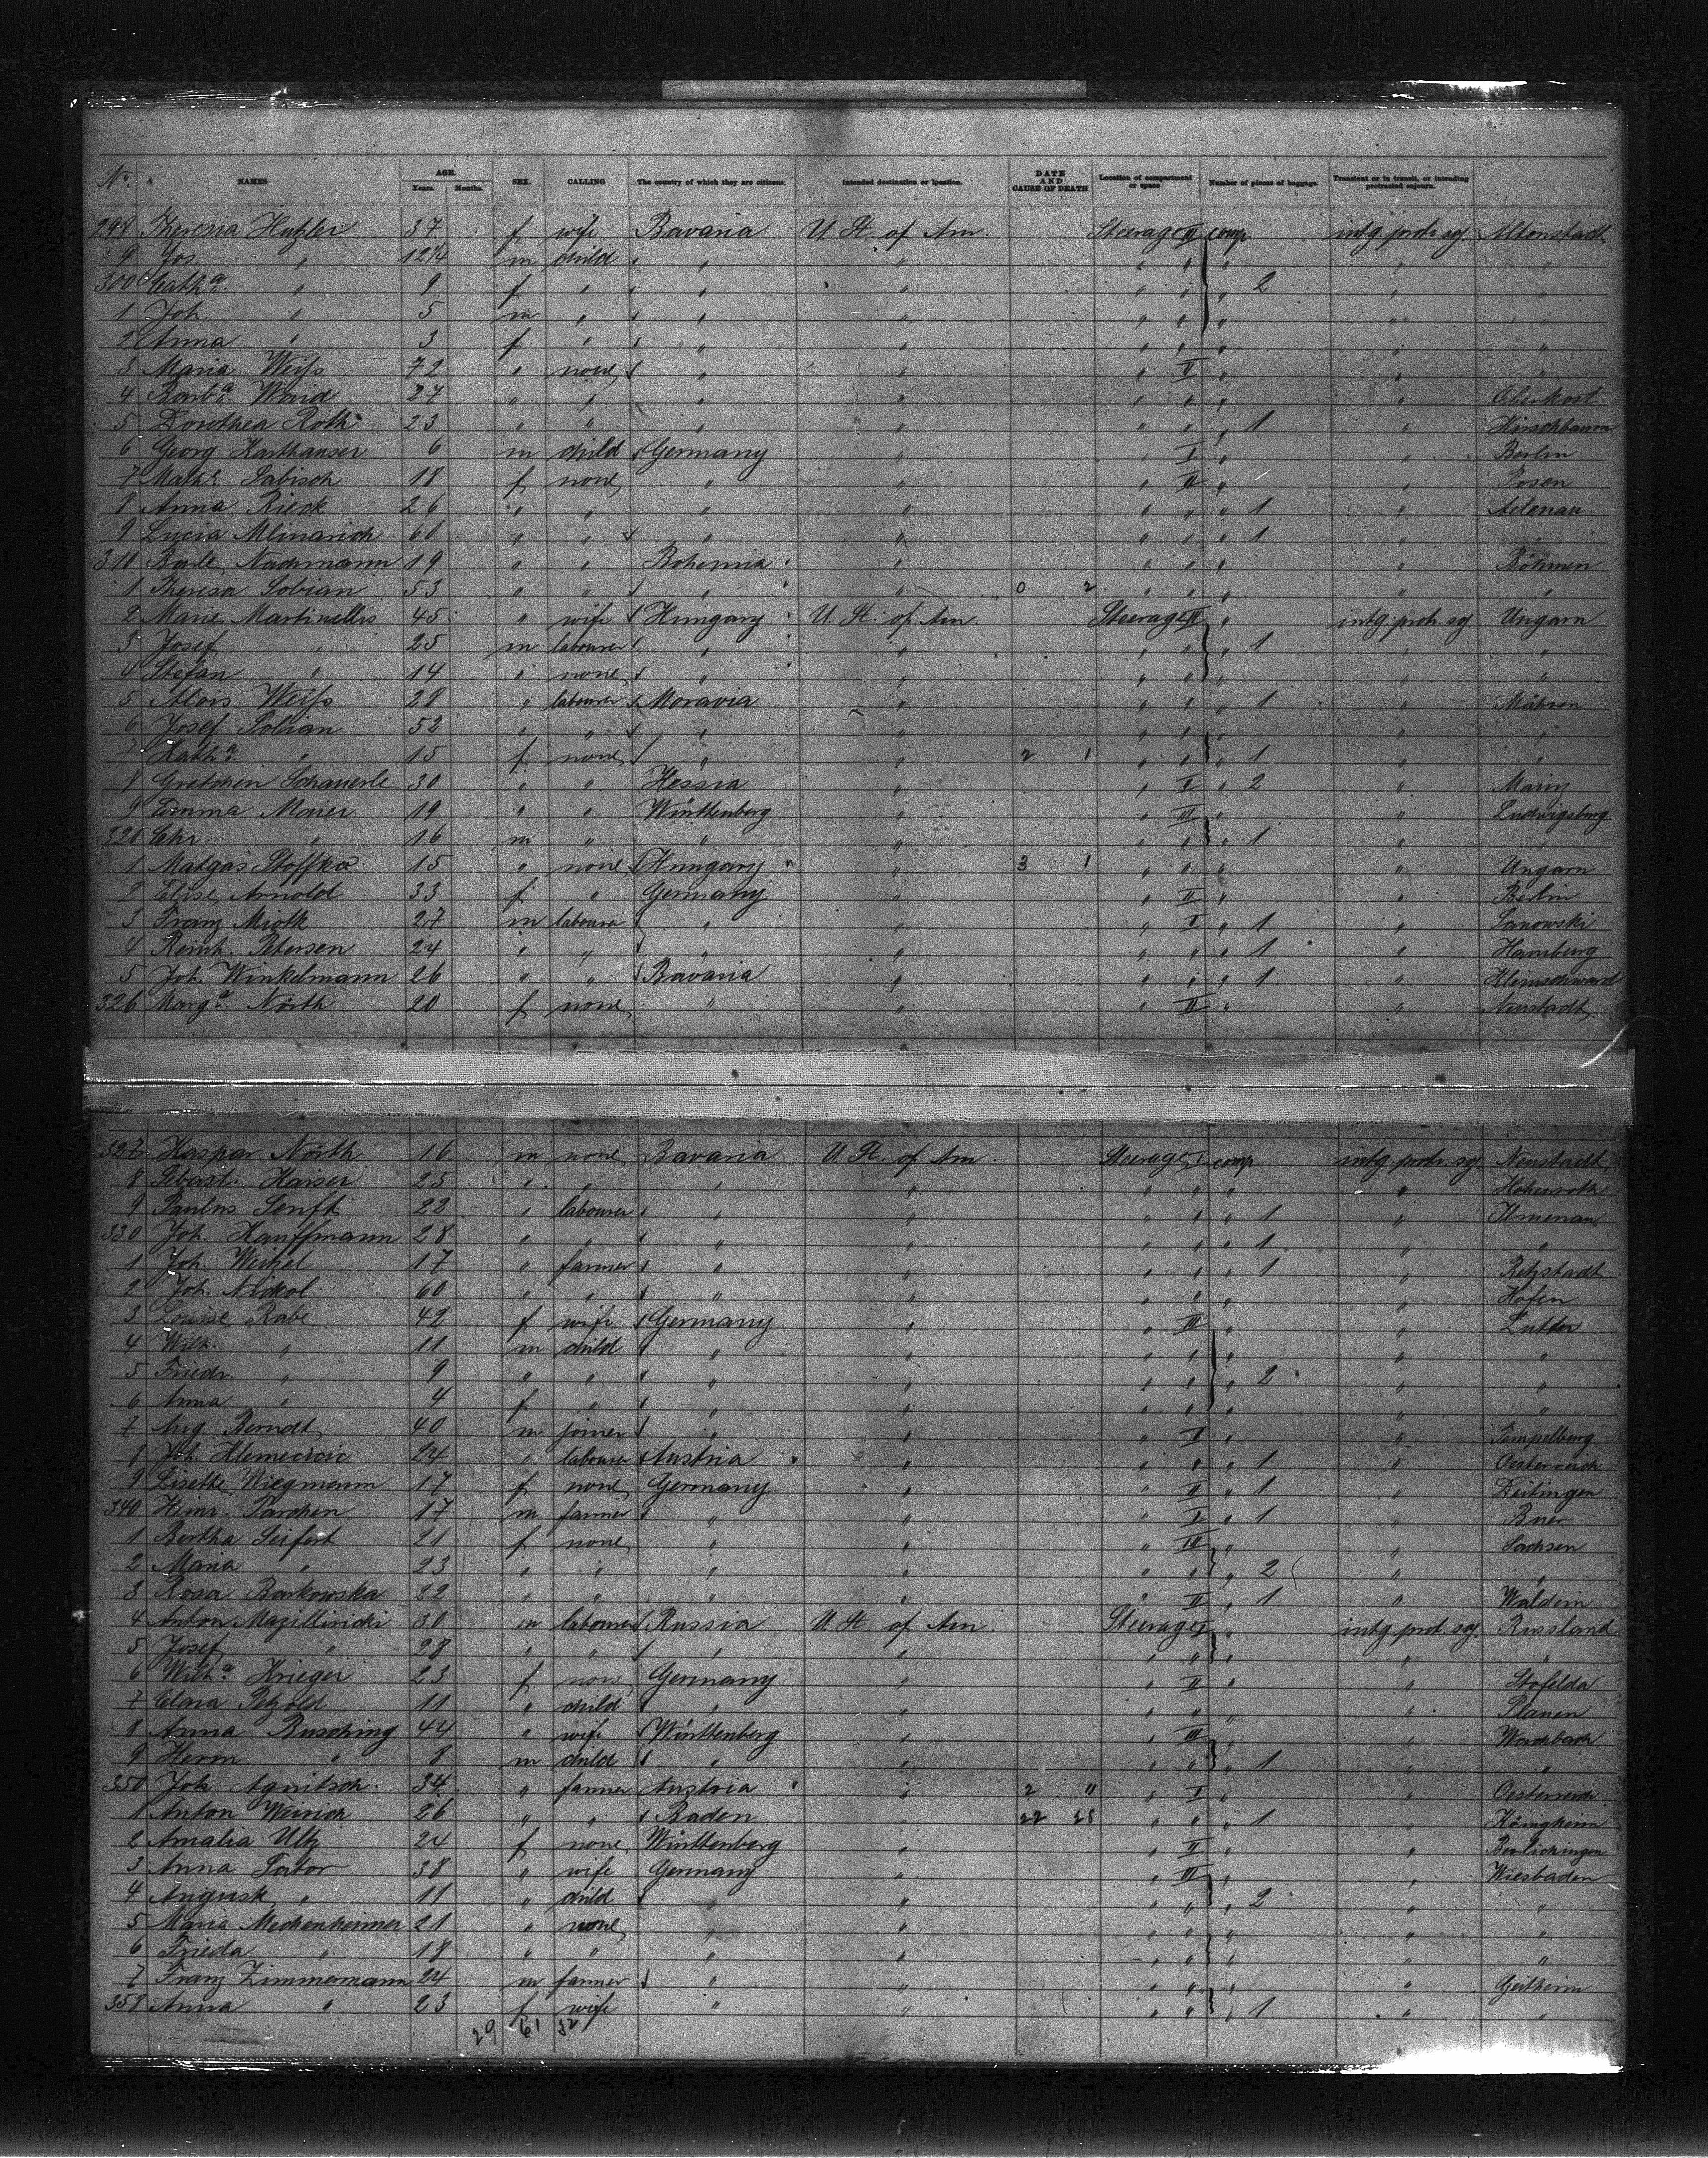 No. NAMES AGE. Years. Months. SEX. CALLING The country of which they are citizens. Intended destination or location. DATE AND CAUSE OF DEATH Location of compartment or space Number of pieces of baggage. Transient or in transit, or intending protracted sojourn.
298 Theresia Hutzler 37 f wife Bavaria U. St. of Am. Steerage II comp intg. protr. sg. Altenstadt
9 Jos. " 12 m child " " " " " " "
300 Cath.a " 9 f " " " " " " 2 " "
1 Joh. " 5 m " " " " " " " "
2 Anna " 3 f " " " " " " "
3 Maria Weiss 72 " none " " " II " " "
4 Barb.a Waid 27 " " " " " " " " Oberkost
5 Dorothea Roth 23 " " " " " " " 1 " Hirschbaum
6 Georg Karthauser 6 m child Germany " " I " " Berlin
7 Math. Labisch 18 f none " " " II " " Posen
8 Anna Rieck 26 " " " " " " " 1 " Ailenau
9 Lucia Mlinarich 60 " " " " " " " 1 " "
310 Barb. Nachmann 19 " " Bohemia " " " " " Böhmen
1 Theresa Sobian 53 " " " " 0 2 " " " " "
2 Marie Martinellis 45 " wife Hungary U. St. of Am. Steerage II " intg. protr. sg Ungarn
3 Josef " 25 m labourer " " " " " 1 " "
4 Stefan " 14 " none " " " " " " "
5 Alois Weiss 28 " labourer Moravia " " " " 1 " Mähren
6 Josef Sobian 52 " " " " " " " "
7 Kath.a " 15 f none " " 2 1 " " " 1 " "
8 Gretchen Schauerle 30 " " Hessia " " I " 2 " Mainz
9 Emma Maier 19 " " Württenberg " " III " " Ludwigsburg
320 Chr. " 16 m " " " " " " 1 " "
1 Matyas Stoffko 15 " none Hungary " 3 1 " " " " Ungarn
2 Elise Arnold 33 f " Germany " " II " " Berlin
3 Franz Mioth 27 m labourer " " " I " 1 " Sanowski
4 Reinh. Petersen 24 " " " " " " " 1 " Hamburg
5 Joh. Winkelmann 26 " " Bavaria " " " " 1 " Kleinschward
326 Marg.a Nöth 20 f none " " " II " " Neustadt
327 Kaspar Nöth 16 m none Bavaria U. St. of Am. Steerage I comp intg. protr. sg. Neustadt
8 Sebast. Kaiser 25 " " " " " " " " Hohenroth
9 Paulus Senft 22 " labourer " " " " " 1 " Ilmenau
330 Joh. Kauffmann 28 " " " " " " " 1 " "
1 Joh. Weikel 17 " farmer " " " " " 1 " Retzstadt
2 Joh. Nickol 60 " " " " " " " " Hofen
3 Louise Rabe 42 f wife Germany " " III " " Lutter
4 Wilh. " 11 m child " " " " " " "
5 Friedr " 9 " " " " " " " 2 " "
6 Anna " 4 f " " " " " " " "
7 Aug. Berndt 40 m joiner " " " I " " Tempelberg
8 Joh. Klemecicic 24 " labourer Austria " " " " 1 " Oesterreich
9 Lisette Wiegmann 17 f none Germany " " II " 1 " Deitingen
340 Heinr. Parchen 17 m farmer " " " I " 1 " Buer
1 Bertha Seifert 21 f none " " " III " " Sachsen
2 Maria " 23 " " " " " " " 2 " "
3 Rosa Borkowska 22 " " " " " II " 1 " Waldeim
4 Anton 30 m labourer Russia U. St. of Am. Steerage I " intg. prot. sg. Russland
5 Josef " 28 " " " " " " " " "
6 Wilh.a Krieger 23 f none Germany " " II " " Stofelda
7 Clara Petzold 11 " child " " " " " " Planen
8 Anna Busching 44 " wife Württenberg " " III " " Wachbach
9 Herm. " 8 m child " " " " " 1 " "
350 Joh. Agnitsch 34 " farmer Austria " 2 " " I " " Oesterreich
1 Anton Weirich 26 " " Baden " 22 25 " " " 1 " Königheim
2 Amalia Ultz 24 f none Württenberg " " II " " Berlichingen
3 Anna Sator 38 " wife Germany " " III " " Wiesbaden
4 August " 11 " child " " " " " 2 " "
5 Maria Meckenheimer 21 " none " " " " " " "
6 Frieda " 18 " " " " " " " " "
7 Franz Zimmermann 24 m farmer " " " " " " Geitheim
358 Anna " 23 f wife " " " " " 1 " "
29 61 32